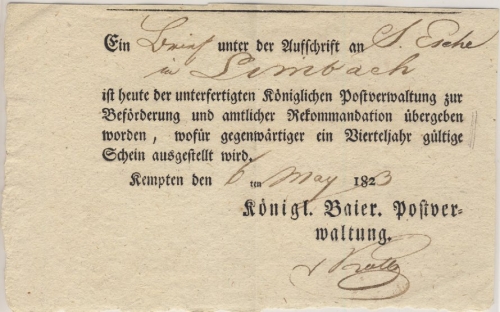 Ein Brief unter der Aufschrift an S. Esche
in Limbach
ist heute der unterfertigten Königlichen Postverwaltung zur
Beförderung und amtlicher Rekommandation übergeben
worden, wofür gegenwärtiger ein Vierteljahr gültige
Schein ausgestellt wird.
Kempten den 6 ten May 1823
Königl. Baier. Postver-
waltung.